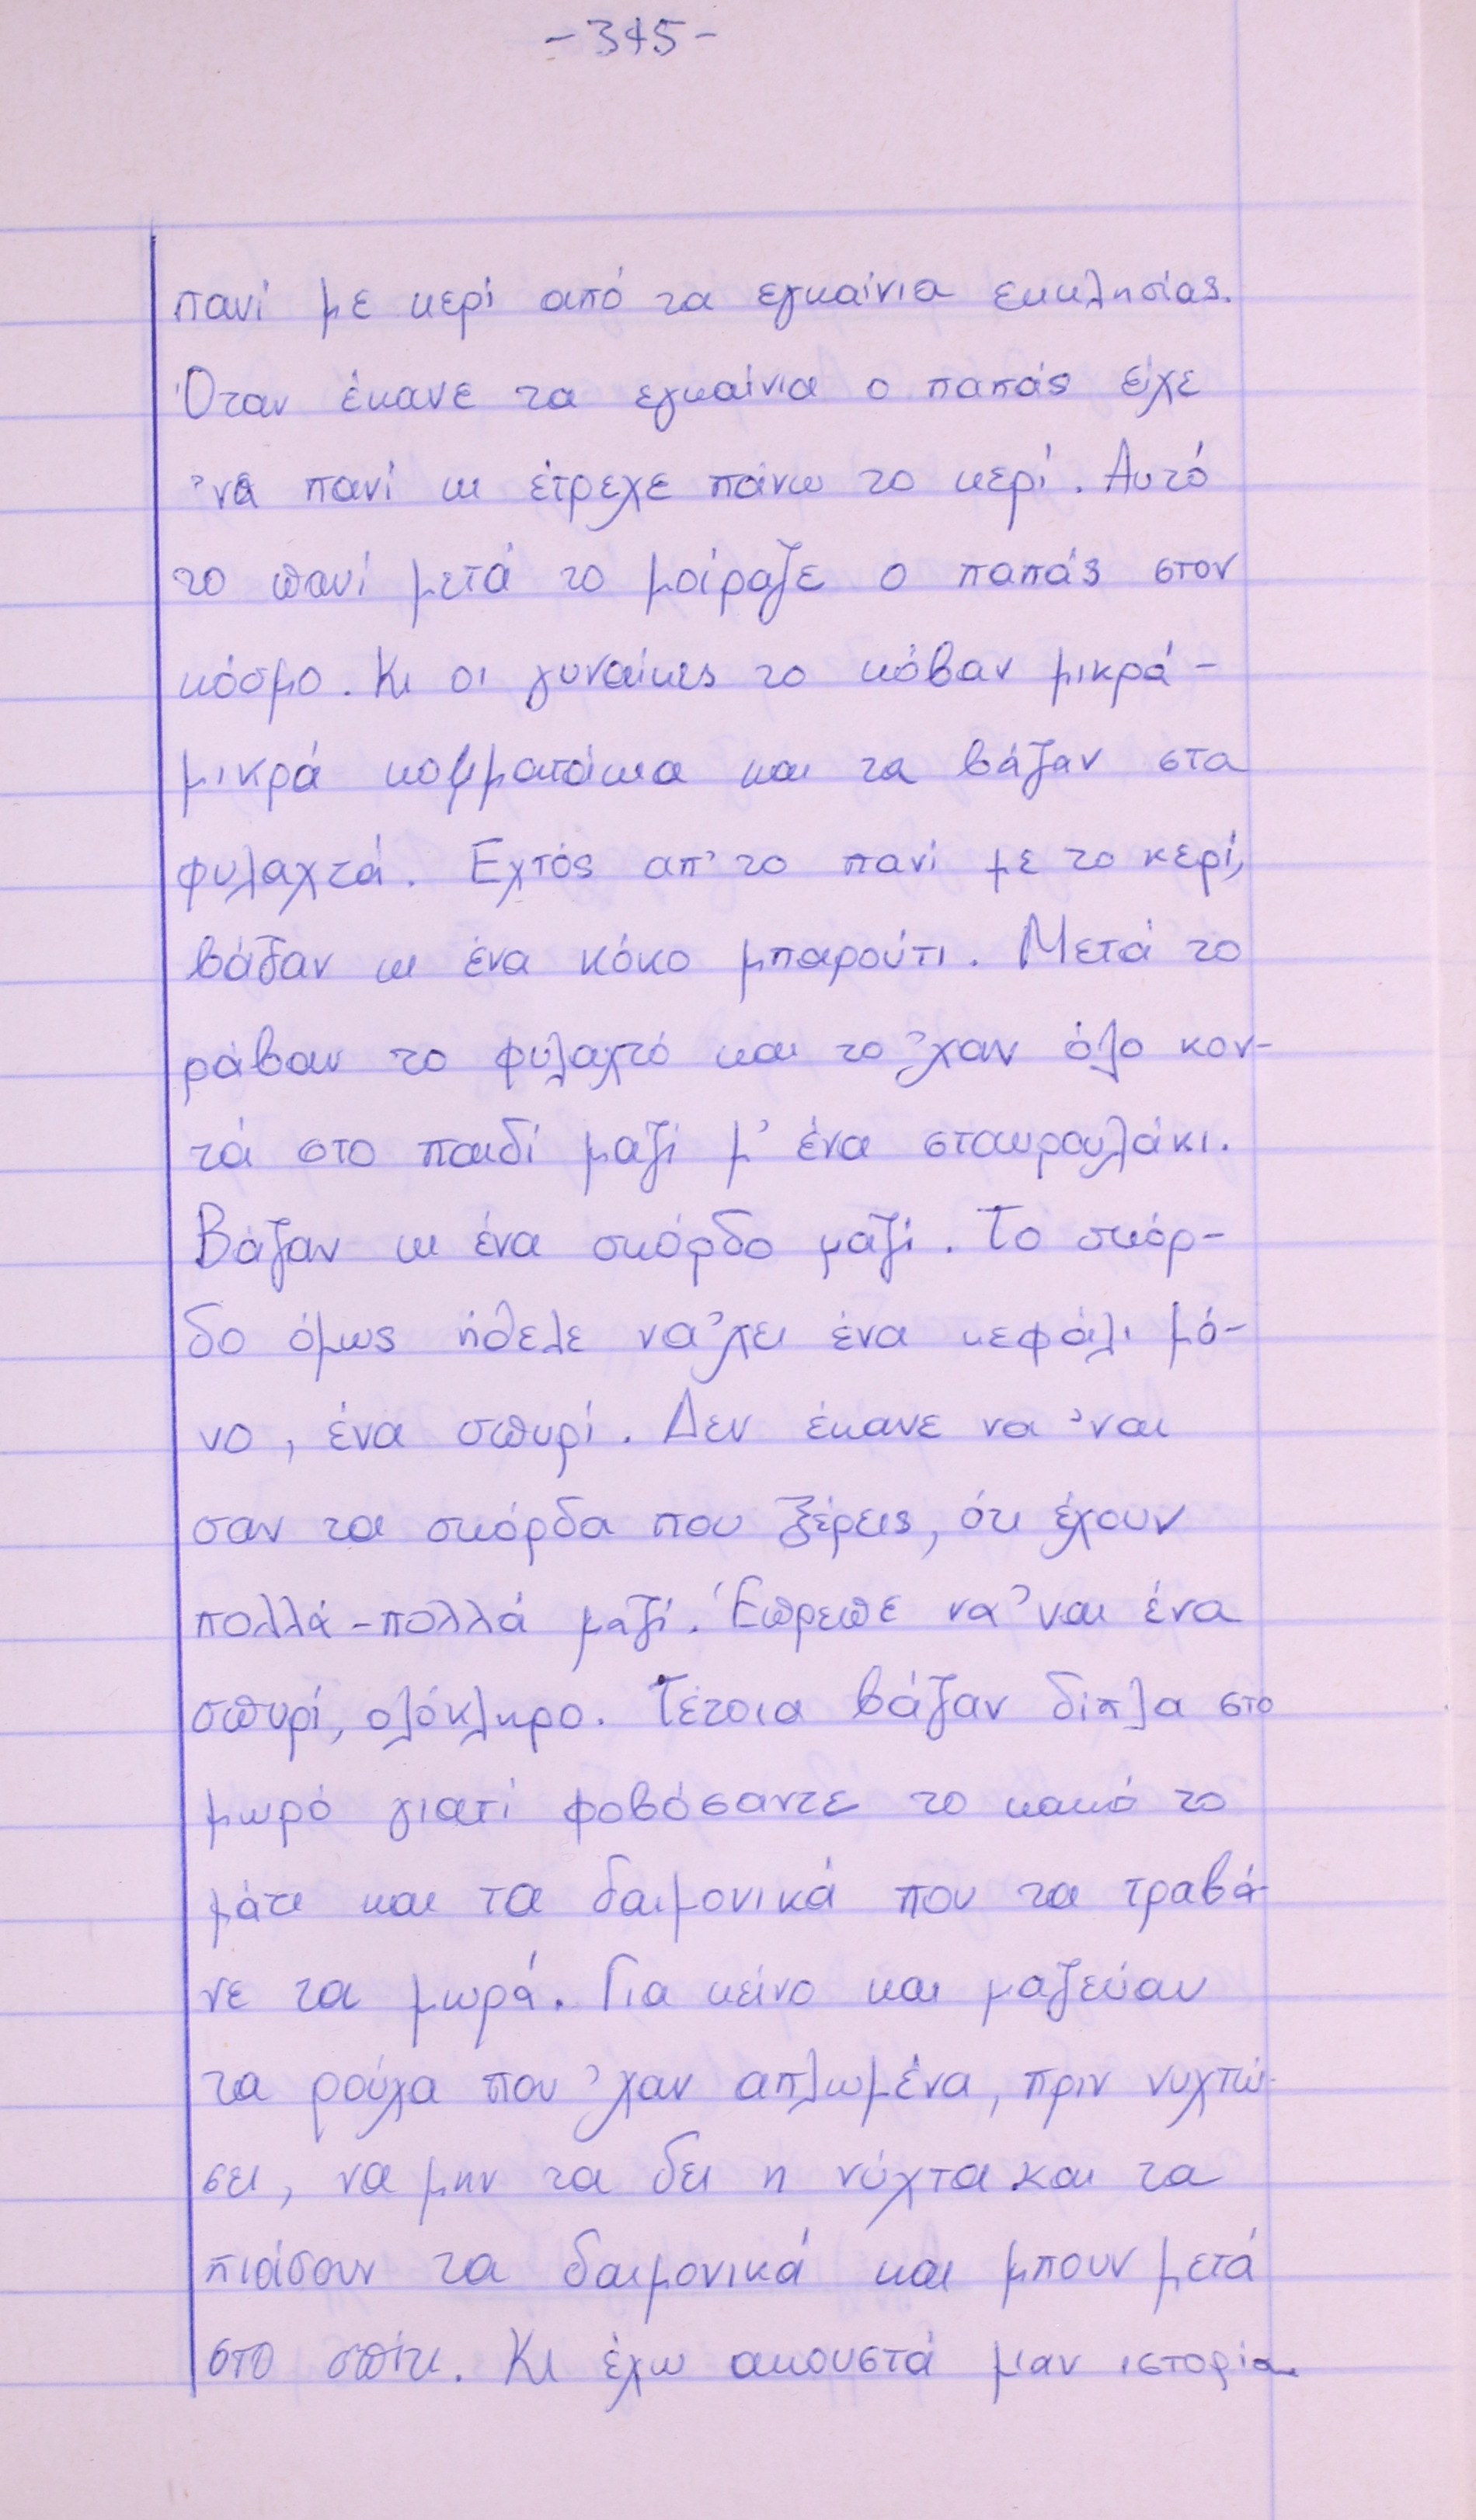 -345-
πανί με κερί από τα εγκαίνια εκκλησίας.
Όταν έκανε τα εγκαίνια ο παπάς είχε
'να πανί κι έτρεχε πάνω το κερί. Αυτό
το πανί μετά το μοίραζε ο παπάς στον
κόσμο. Κι οι γυναίκες το κόβαν μικρά-
μικρά κομματάκια και τα βάζαν στα
φυλαχτά. Εχτός απ' το πανί με το κερί,
βάζαν κι ένα κόκο μπαρούτι. Μετά το
ράβαν το φυλαχτό και το 'χαν όλο κον-
τά στο παιδί μαζί μ' ένα σταυρουλάκι.
Βάζαν κι ένα σκόρδο μαζί. Το σκόρ-
δο όμως ήθελε να 'χει ένα κεφάλι μό-
νο, ένα σπυρί. Δεν έκανε να 'ναι
σαν τα σκόρδα που ξέρεις, ότι έχουν
πολλά-πολλά μαζί. Έπρεπε να 'ναι ένα
σπυρί, ολόκληρο. Τέτοια βάζαν δίπλα στο
μωρό γιατί φοβόσαντε το κακό το
μάτι και τα δαιμονικά που τα τραβά-
νε τα μωρά. Για κείνο και μαζεύαν
τα ρούχα που 'χαν απλωμένα, πριν νυχτώ-
σει, να μην τα δει η νύχτα και τα
πιάσουν τα δαιμονικά και μπουν μετά
στο σπίτι. Κι έχω ακουστά μιαν ιστορία